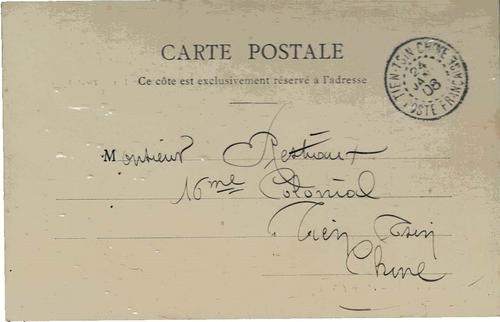 CARTE POSTALE
Ce côté est exclusivement réservé à l'adresse
TIEN-TSIN CHINE
24
08
POSTE FRANÇAISE
Monsieur Restiaux
16me Colonial
Tien Tsin
Chine